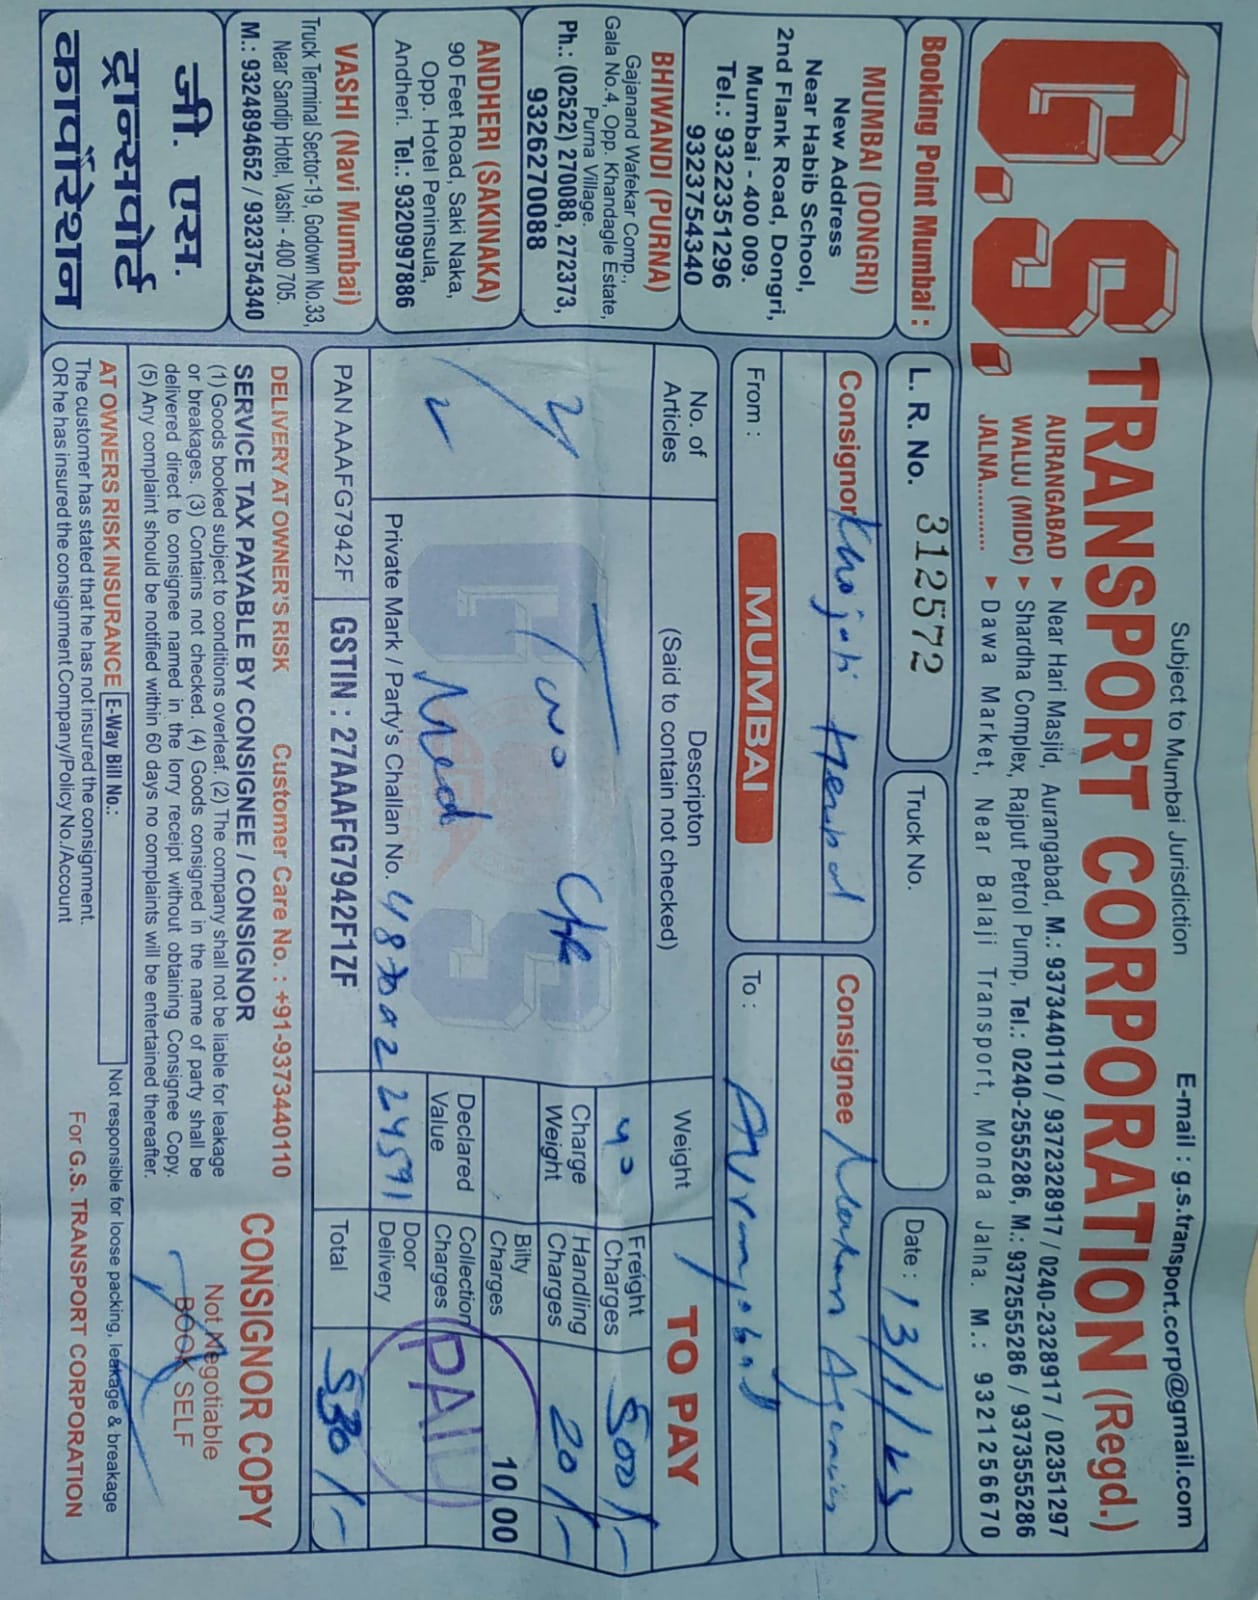 Subject to Mumbai Jurisdiction
E-mail : g.s.transport.corp@gmail.com
G.S. TRANSPORT CORPORATION (Regd.)
AURANGABAD ► Near Hari Masjid, Aurangabad, M.: 9373440110 / 9372328917 / 0240-2328917 / 02351297
WALUJ (MIDC) ► Shardha Complex, Rajput Petrol Pump, Tel.: 0240-2555286, M.: 9372555286 / 9373555286
JALNA........... ► Dawa Market, Near Balaji Transport, Monda Jalna. M.: 9321256670
Booking Point Mumbai :
MUMBAI (DONGRI)
New Address
Near Habib School,
2nd Flank Road, Dongri,
Mumbai - 400 009.
Tel.: 9322351296
9323754340
BHIWANDI (PURNA)
Gajanand Wafekar Comp.,
Gala No.4, Opp. Khandagle Estate,
Purna Village.
Ph.: (02522) 270088, 272373,
9326270088
ANDHERI (SAKINAKA)
90 Feet Road, Saki Naka,
Opp. Hotel Peninsula,
Andheri. Tel.: 9320997886
VASHI (Navi Mumbai)
Truck Terminal Sector-19, Godown No.33,
Near Sandip Hotel, Vashi - 400 705.
M.: 9324894652 / 9323754340
जी. एस.
ट्रान्सपोर्ट
कार्पोरेशन
L. R. No. 312572
Truck No.
Date : 13/1/23
Consignor Khojati
Consignee Agencies
From : MUMBAI
To : Aurangabad
No. of Articles
Descripton
(Said to contain not checked)
Weight
TO PAY
2
Two
Med
40
Freight Charges 500/-
Charge Weight
Handling Charges 20/-
Bilty Charges 10 00
Declared Value
Collection Charges
Door Delivery
PAID
Private Mark / Party's Challan No.
24591
PAN AAAFG7942F
GSTIN : 27AAAFG7942F1ZF
Total 530/-
DELIVERY AT OWNER'S RISK
Customer Care No. : +91-9373440110
SERVICE TAX PAYABLE BY CONSIGNEE / CONSIGNOR
(1) Goods booked subject to conditions overleaf. (2) The company shall not be liable for leakage
or breakages. (3) Contains not checked. (4) Goods consigned in the name of party shall be
delivered direct to consignee named in the lorry receipt without obtaining Consignee Copy.
(5) Any complaint should be notified within 60 days no complaints will be entertained thereafter.
CONSIGNOR COPY
Not Negotiable
BOOK SELF
AT OWNERS RISK INSURANCE
E-Way Bill No.:
Not responsible for loose packing, leakage & breakage
The customer has stated that he has not insured the consignment.
OR he has insured the consignment Company/Policy No./Account
For G.S. TRANSPORT CORPORATION